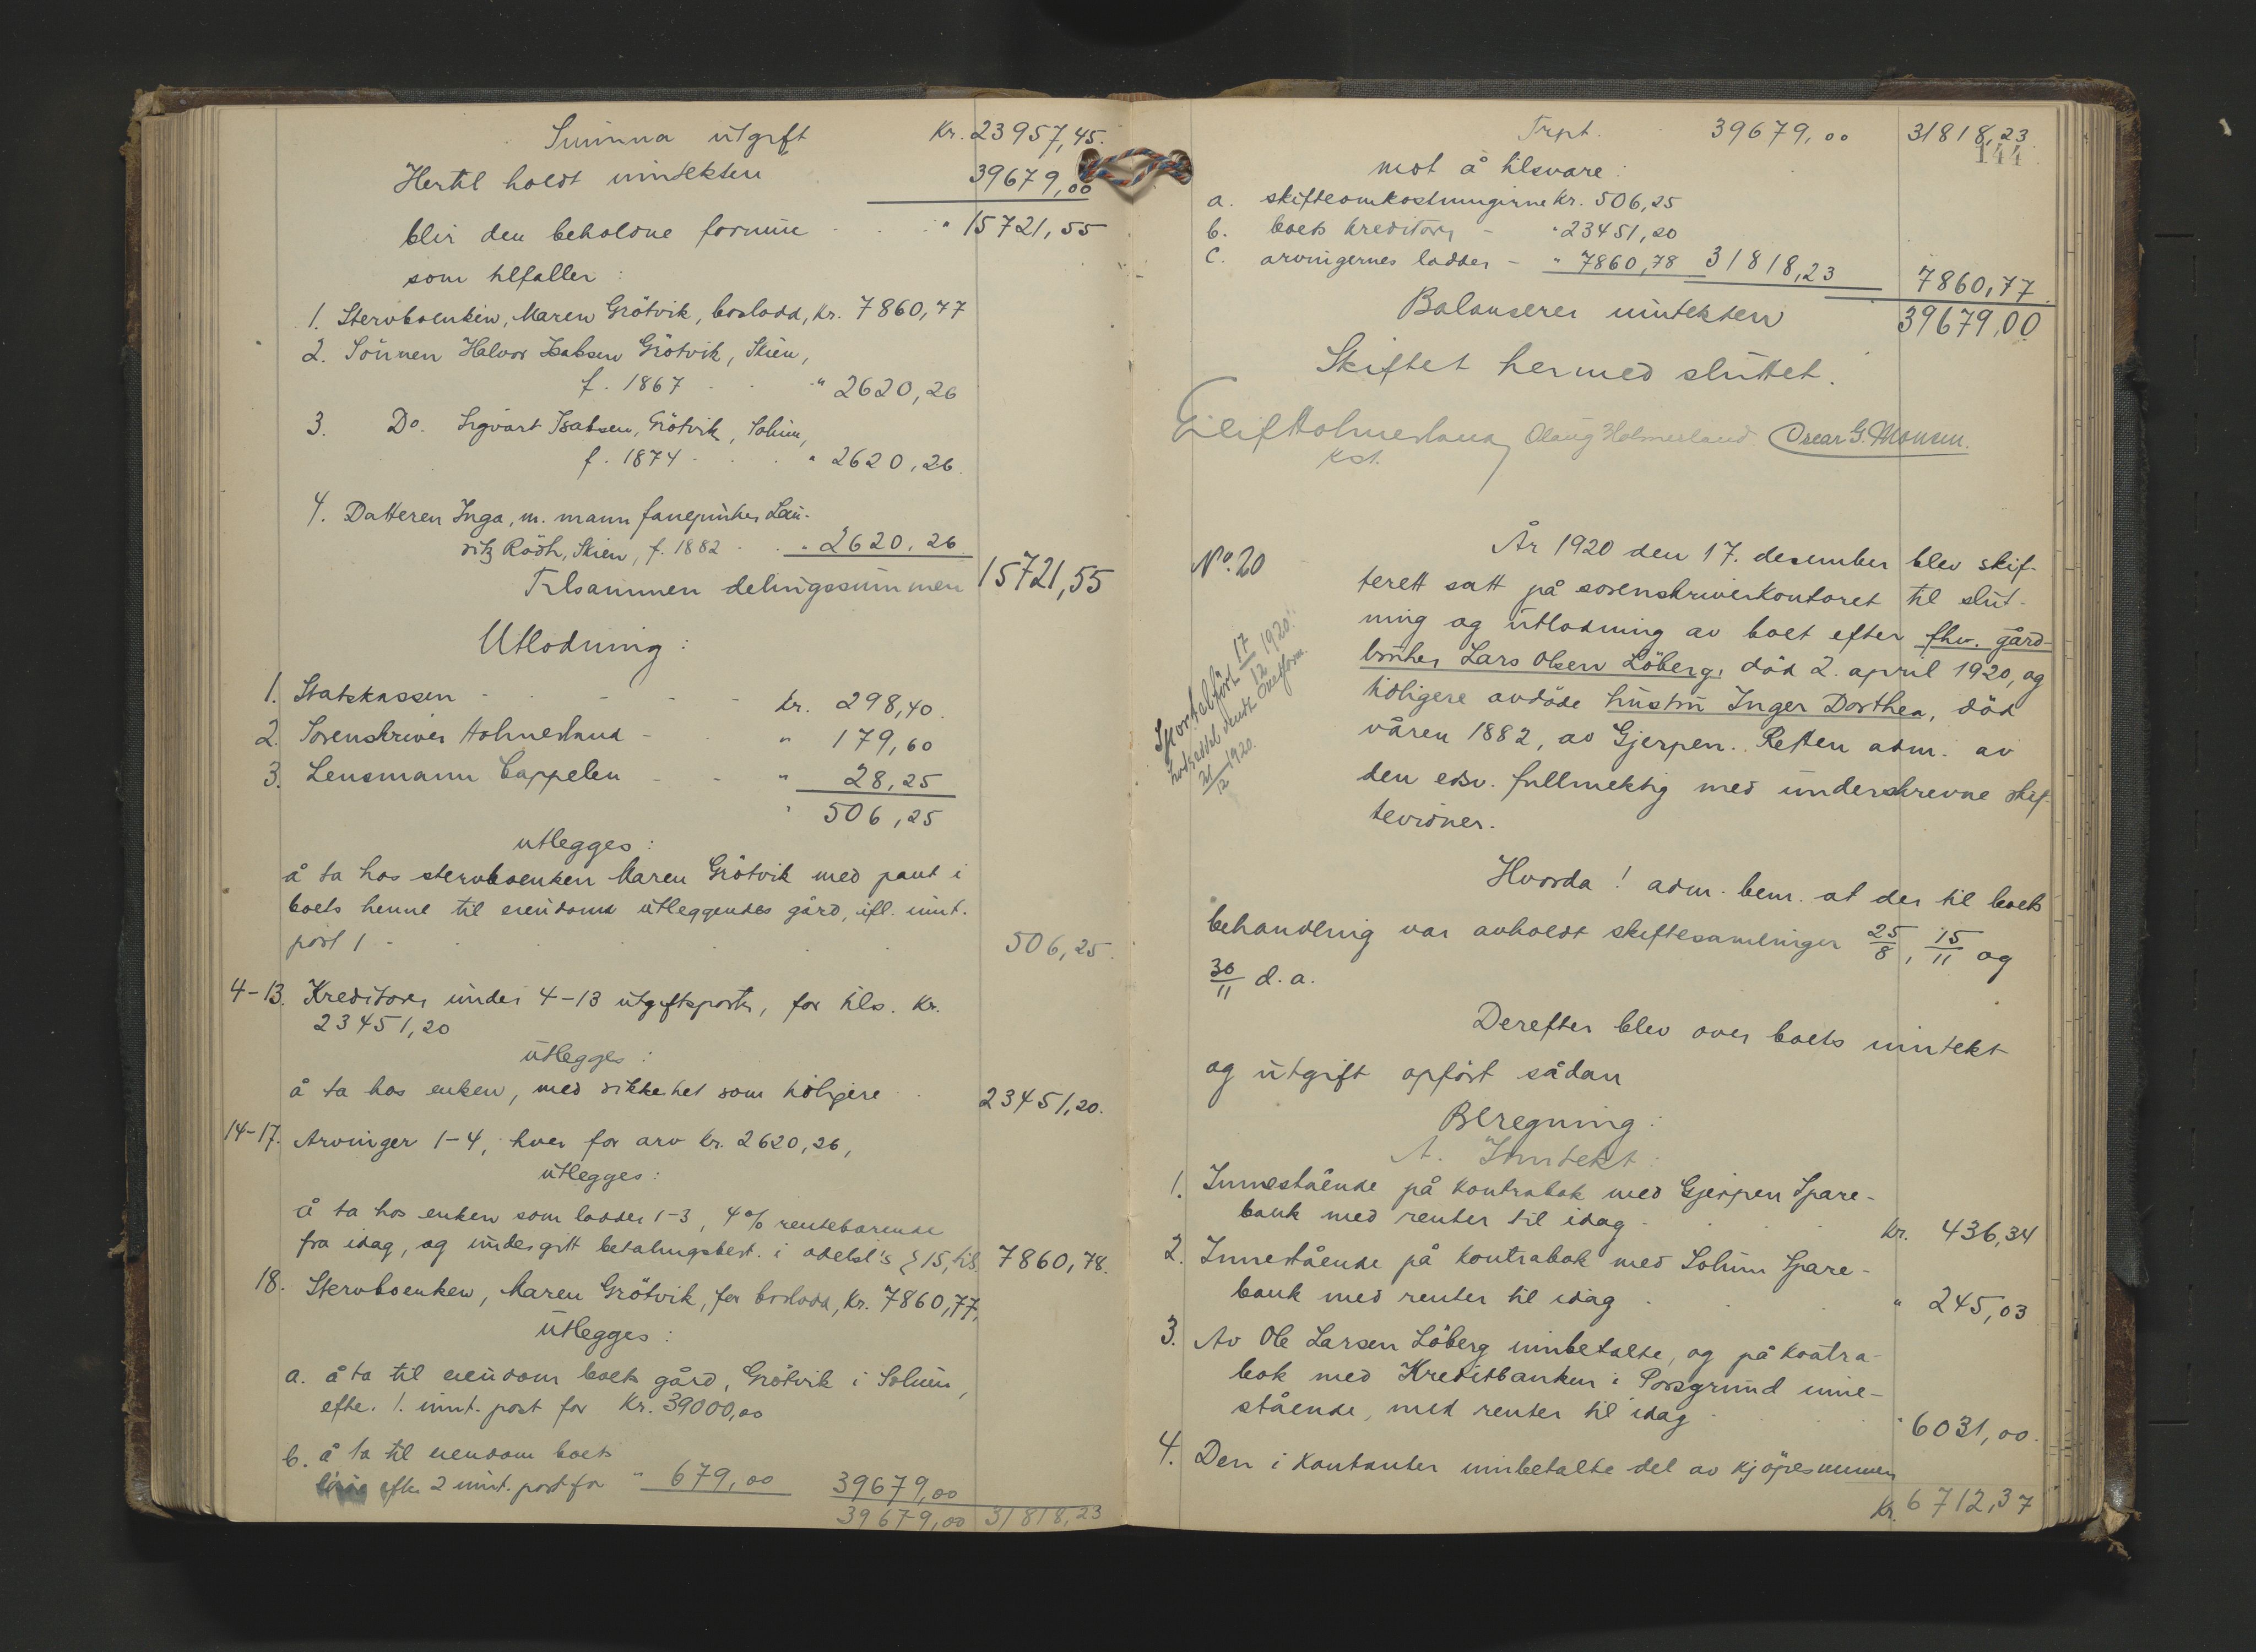 Summa utgift Kr. 23957,45.
Hertil holdt inntekten 39679,00
blir den beholdne formue " 15721,55
som tilfaller:
1. Stervboenken, Maren Grötvik, boslodd, Kr. 7860,77
2. Sönnen Halvor Isaksen Grötvik, Skien,
f. 1867 " 2620,26
3. Do. Sigvart Isaksen, Grötvik, Solum,
f. 1874 " 2620,26.
4. Datteren Inga, m. mann Lau-
ritz Rödh, Skien, f. 1882 " 2620,26.
Tilsammen delingssummen 15721,55
Utlodning:
1. Statskassen kr. 298,40.
2. Sorenskriver Holmesland - " 179,60
3. Lensmann Cappelen - " 28,25
" 506,25
utlegges:
å ta hos stervboenken Maren Grötvik med pant i
boets henne til eiendoms utleggendes gård, ifl. innt.
post 1 - 506,25.
4-13. Kreditorer under 4-13 utgiftsposter, for tils. Kr.
23451,20
utlegges:
å ta hos enken, med sikkerhet som tidligere 23451,20.
14-17. Arvinger 1-4, hver for arv kr. 2620,26,
utlegges:
å ta hos enken som lodder 1-3, 4% rentebærende
fra idag, og undergitt betalingsbest. i odelsl's § 15, tils. 7860,78.
18. Stervboenken, Maren Grötvik, for boslodd, Kr. 7860,77,
utlegges:
a. å ta til eiendom boets gård, Grötvik i Solum,
efter 1. innt. post for Kr. 39000,00
b. å ta til eiendom boets
efter 2 innt. post for " 679,00 39679,00
39679,00 31818,23
Trpt. 39679,00 31818,23.
144
mot å tilsvare:
a. skifteomkostningerne Kr. 506,25
b. boets kreditorer - " 23451,20
c. arvingernes lodder - " 7860,78 31818,23 7860,77.
Balanserer inntekten 39679,00
Skiftet hermed sluttet.
Eilif Holmesland Olaug Holmesland Oscar G. Monsen.
kst.
No. 20
År 1920 den 17. desember blev skif-
terett satt på sorenskriverkontoret til slut-
ning og utlodning av boet efter fhv. gård-
bruker Lars Olsen Löberg, död 2. april 1920, og
tidligere avdöde hustru Inger Dorthea, död
våren 1882, av Gjerpen. Retten adm. av
den edsv. fullmektig med underskrevne skif-
tevidner.
Sportelfört 17/12 1920.
Lodseddel sendt
21/12 1920.
Hvorda! adm. bem. at der til boets
behandling var avholdt skiftesamlinger 25/8, 15/11 og
30/11 d. a.
Derefter blev over boets inntekt
og utgift opfört sådan
Beregning:
A. Inntekt:
1. Innestående på kontrabok med Gjerpen Spare-
bank med renter til idag kr. 436,34
2. Innestående på kontrabok med Solum Spare-
bank med renter til idag " 245,03
3. Av Ole Larsen Löberg innbetalte, og på kontra-
bok med Kreditbanken i Porsgrund inne-
stående, med renter til idag " 6031,00.
4. Den i kontanter innbetalte del av kjöpesummen
Kr. 6712,37